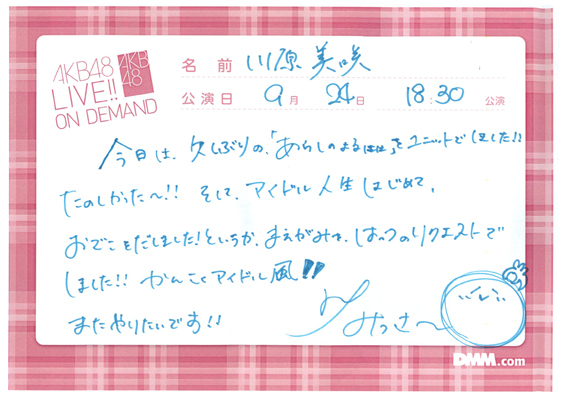 AKB48
LIVE!!
ON DEMAND
AKB
48
名前 川原美咲
公演日 9月 24日 18:30 公演
今日は、久しぶりの、「あらしのよるには」をユニットでしました!!
たのしかった〜!! そして、アイドル人生はじめて、
おでこをだしました!というか、まえがみを、はっつのリクエストで
しました!! かんこくアイドル風!!
またやりたいです!!
みっさ〜
DMM.com